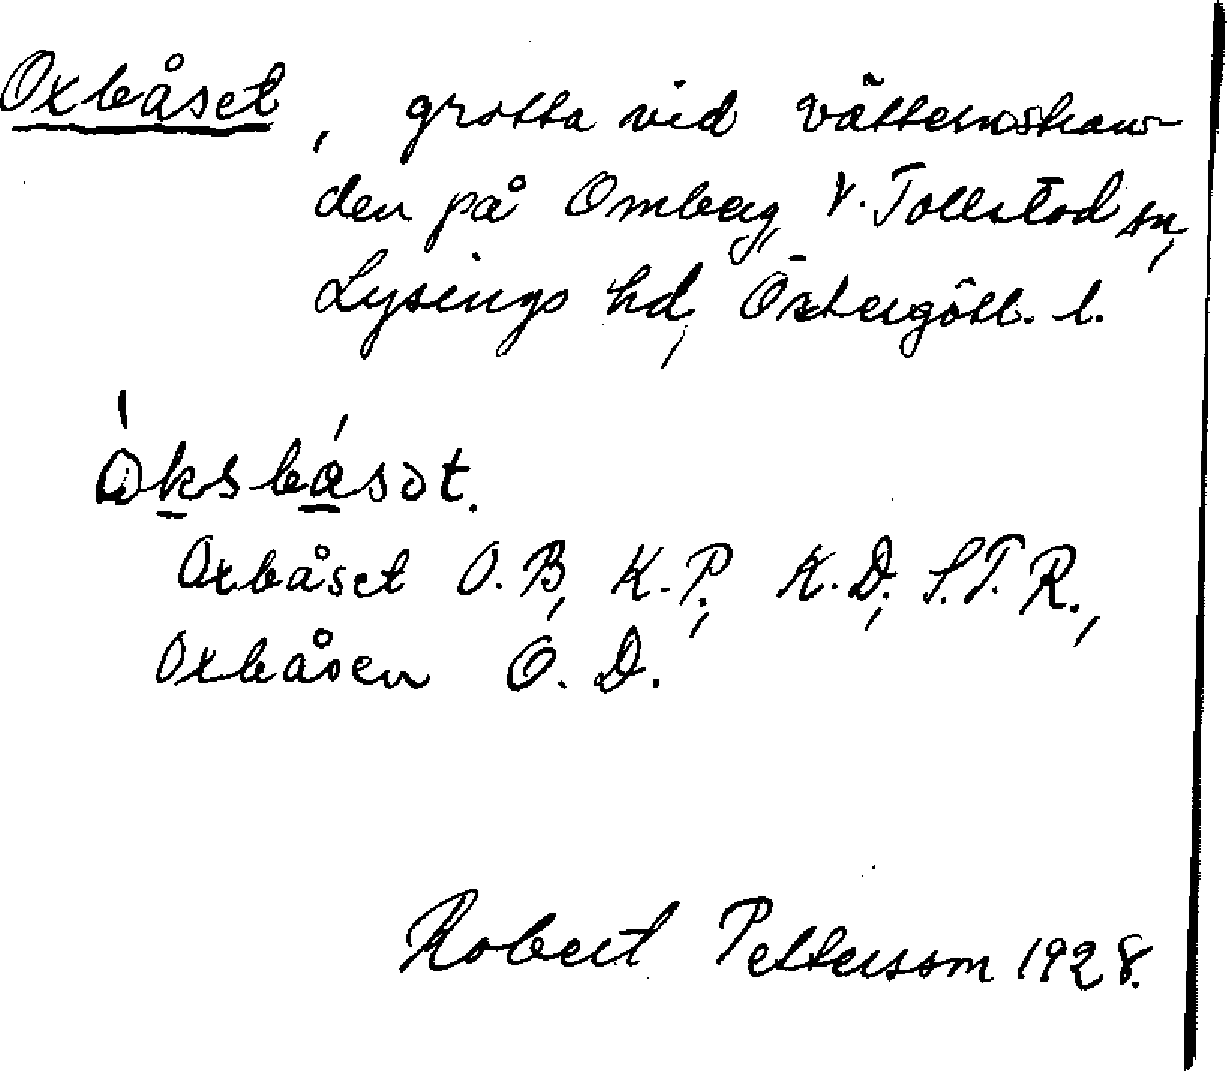 Oxbåset, grotta vid vätternstran-
den på Omberg, V. Tollstad sn,
Lysings hd, Östergötl. l.
ȯksbásət.
Oxbåset O. B, K. P., K. D., S. T. R.,
Oxbåsen O. D.
Robert Pettersson 1928.